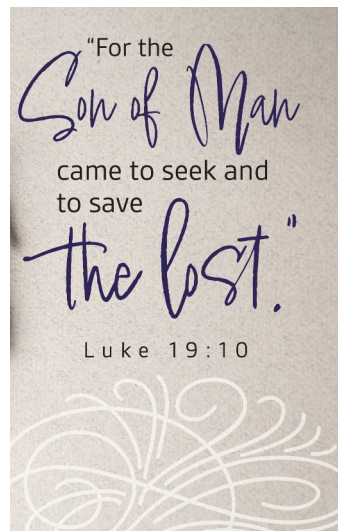 “For the
Son of Man
came to seek and
to save
the lost.”
Luke 19:10